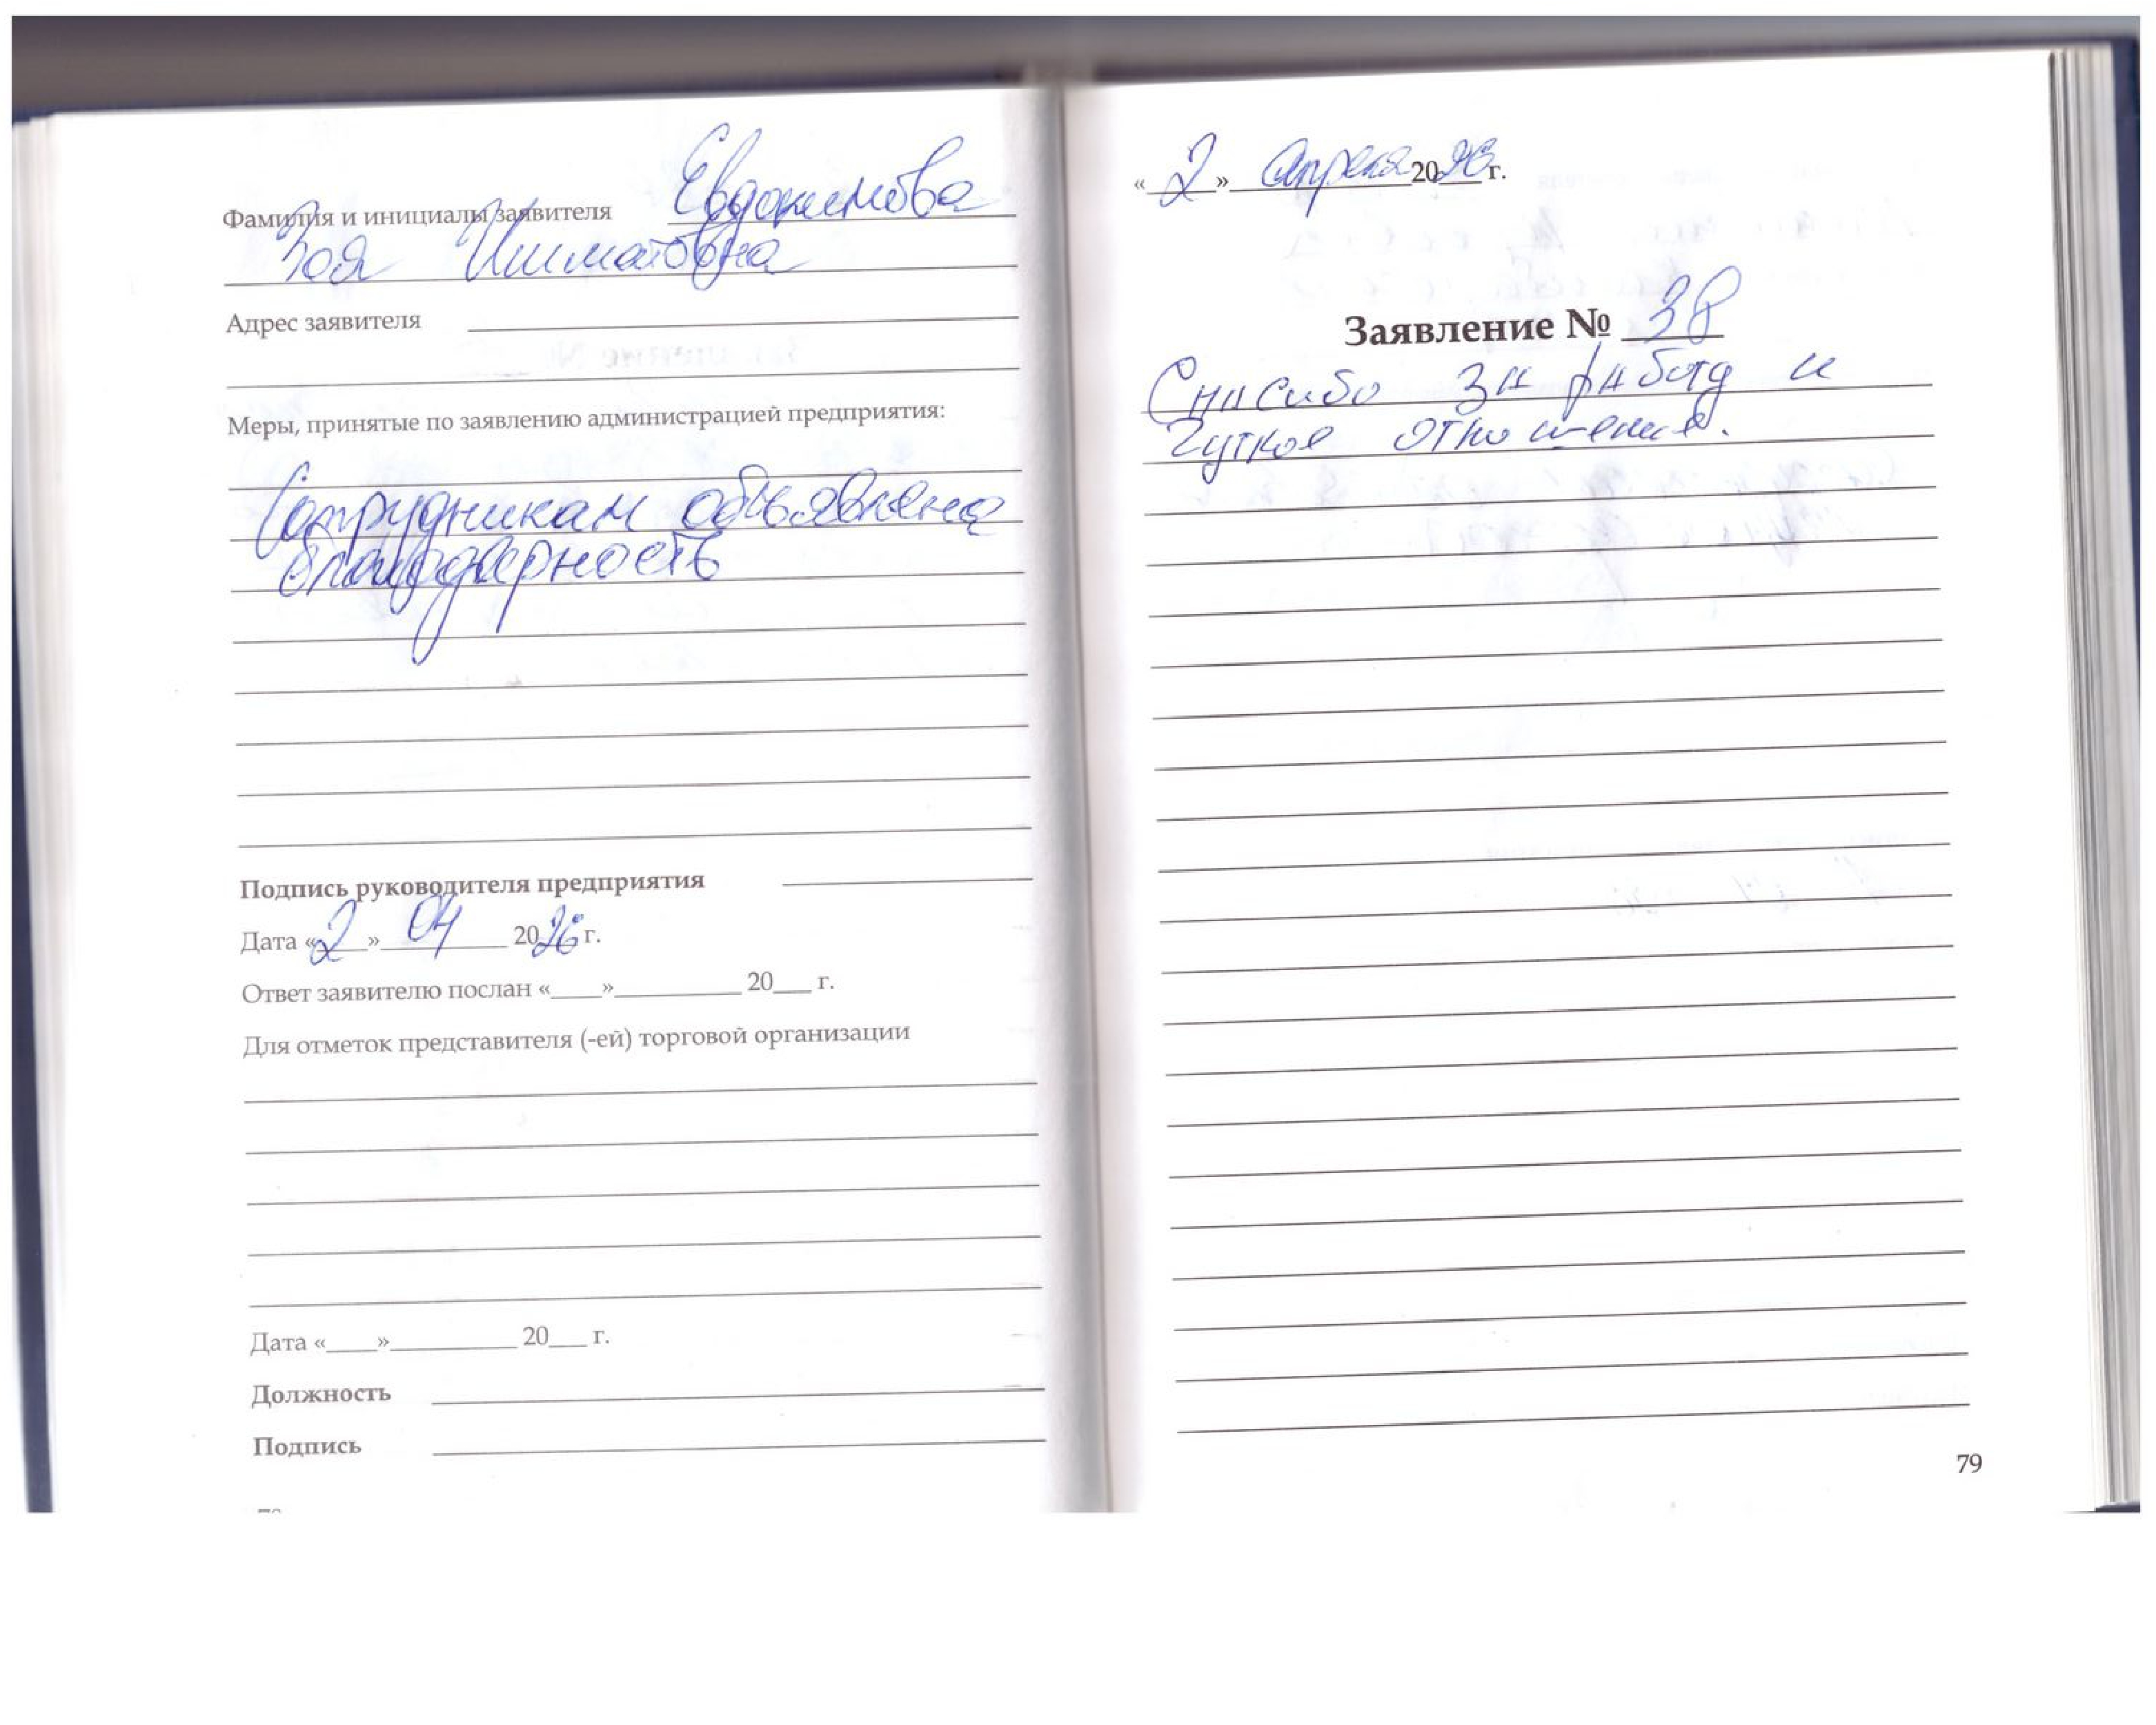 Фамилия и инициалы заявителя Евдокимова
Зоя Ишматовна
Адрес заявителя
Меры, принятые по заявлению администрацией предприятия:
Сотрудникам объявлена
благодарность
Подпись руководителя предприятия
Дата «2» 04 2026 г.
Ответ заявителю послан «____»__________ 20___ г.
Для отметок представителя (-ей) торговой организации
Дата «____»__________ 20___ г.
Должность
Подпись
«2» Апреля 2026 г.
Заявление № 38
Спасибо за работу и
чуткое отношение.
79